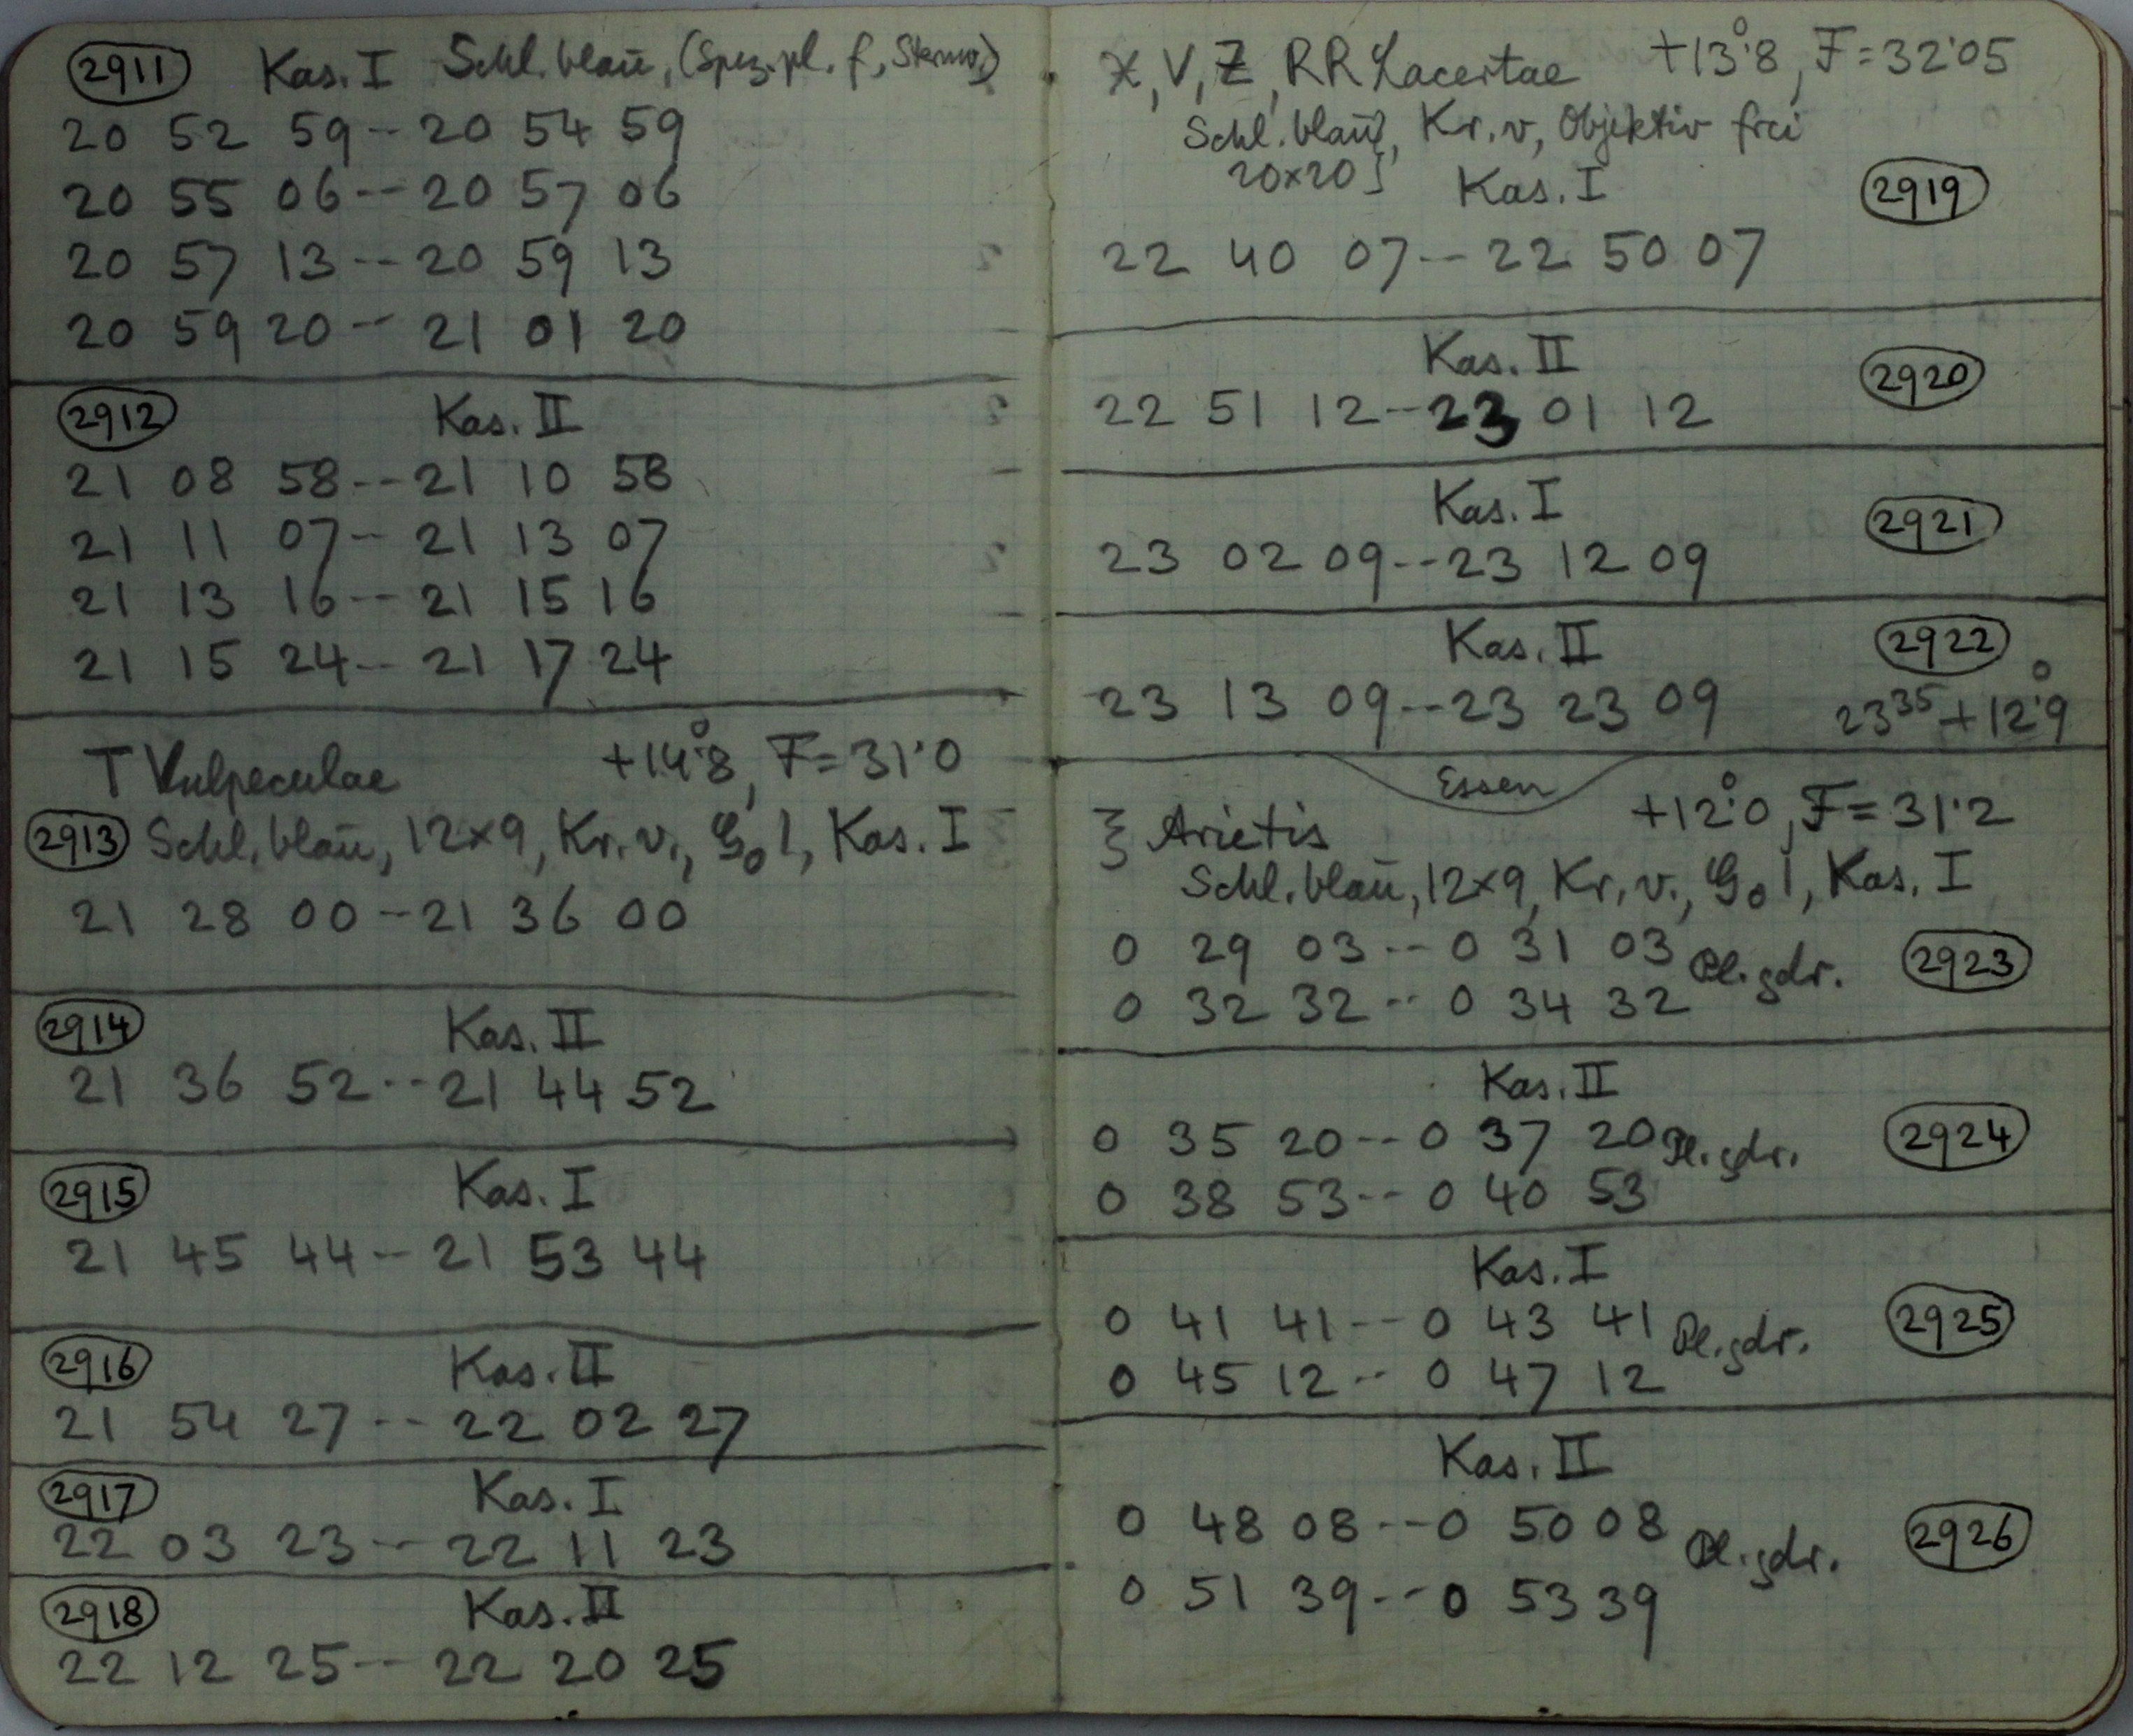 2911 Kas. I Schl. blau, (Spez. pl. f. Sternw.)
20 52 59 -- 20 54 59
20 55 06 -- 20 57 06
20 57 13 -- 20 59 13
20 59 20 -- 21 01 20
2912 Kas. II
21 08 58 -- 21 10 58
21 11 07 -- 21 13 07
21 13 16 -- 21 15 16
21 15 24 -- 21 17 24
T Vulpeculae +14°.8, F=31.0
2913 Schl. blau, 12×9, Kr. v., G0 l, Kas. I
21 28 00 -- 21 36 00
2914 Kas. II
21 36 52 -- 21 44 52
2915 Kas. I
21 45 44 -- 21 53 44
2916 Kas. II
21 54 27 -- 22 02 27
2917 Kas. I
22 03 23 -- 22 11 23
2918 Kas. II
22 12 25 -- 22 20 25
X, V, Z, RR Lacertae +13°.8, F=32.05
Schl. blau, Kr. v, Objektiv frei
20×20 Kas. I 2919
22 40 07 -- 22 50 07
Kas. II 2920
22 51 12 -- 23 01 12
Kas. I 2921
23 02 09 -- 23 12 09
Kas. II 2922
23 13 09 -- 23 23 09 23 35 +12°.9
Essen
ξ Arietis +12°.0, F=31.2
Schl. blau, 12×9, Kr. v., G0 l, Kas. I
0 29 03 -- 0 31 03 Pl. gdr. 2923
0 32 32 -- 0 34 32
Kas. II
0 35 20 -- 0 37 20 Pl. gdr. 2924
0 38 53 -- 0 40 53
Kas. I
0 41 41 -- 0 43 41 Pl. gdr. 2925
0 45 12 -- 0 47 12
Kas. II
0 48 08 -- 0 50 08 Pl. gdr. 2926
0 51 39 -- 0 53 39